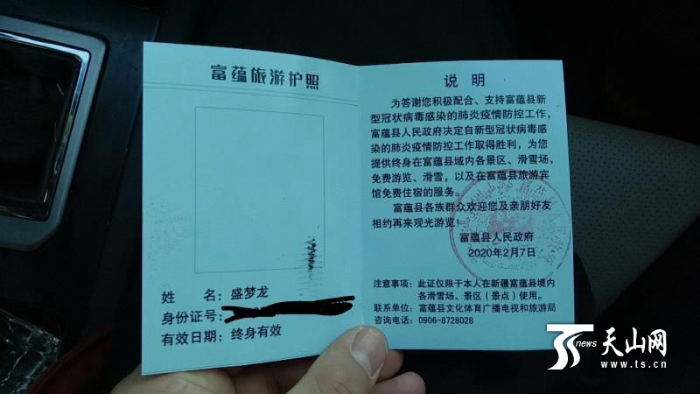 富蕴旅游护照
姓 名：盛梦龙
身份证号：
有效日期：终身有效
说 明
为答谢您积极配合、支持富蕴县新
型冠状病毒感染的肺炎疫情防控工作，
富蕴县人民政府决定自新型冠状病毒感
染的肺炎疫情防控工作取得胜利，为您
提供终身在富蕴县域内各景区、滑雪场，
免费游览、滑雪，以及在富蕴县旅游宾
馆免费住宿的服务。
富蕴县各族群众欢迎您及亲朋好友
相约再来观光游览！
富蕴县人民政府
2020年2月7日
注意事项：此证仅限于本人在新疆富蕴县境内
各滑雪场、景区（景点）使用。
联系单位：富蕴县文化体育广播电视和旅游局
咨询电话：0906-8728028
TS news 天山网
www.ts.cn